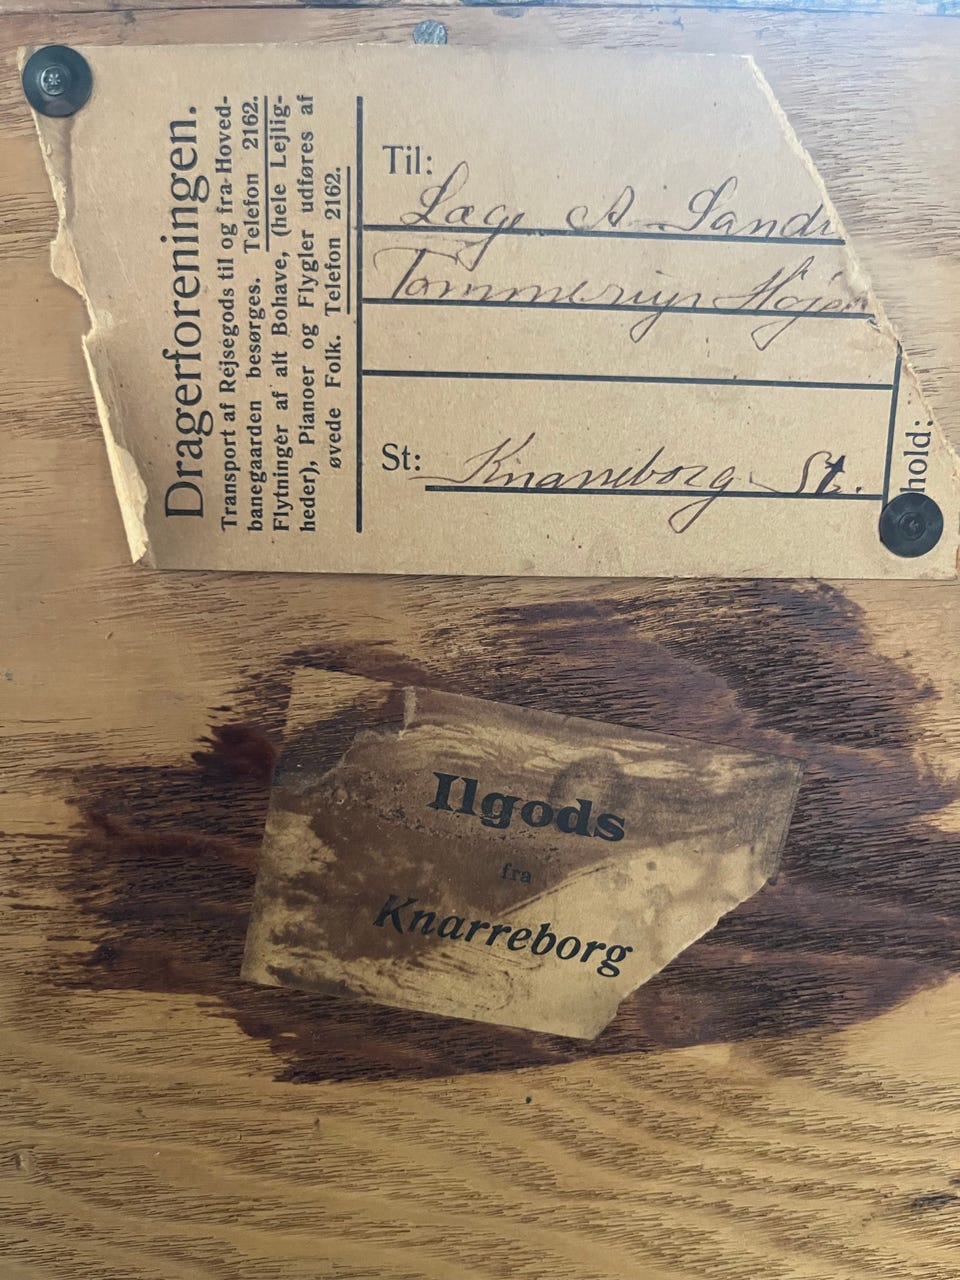 Dragerforeningen.
Transport af Rejsegods til og fra Hoved-
banegaarden besørges. Telefon 2162.
Flytninger af alt Bohave, (hele Lejlig-
heder), Pianoer og Flygler udføres af
øvede Folk. Telefon 2162.
Til:
Læge A. Sand
Tommerup Højs
St: Knarreborg St.
hold:
Ilgods
fra
Knarreborg